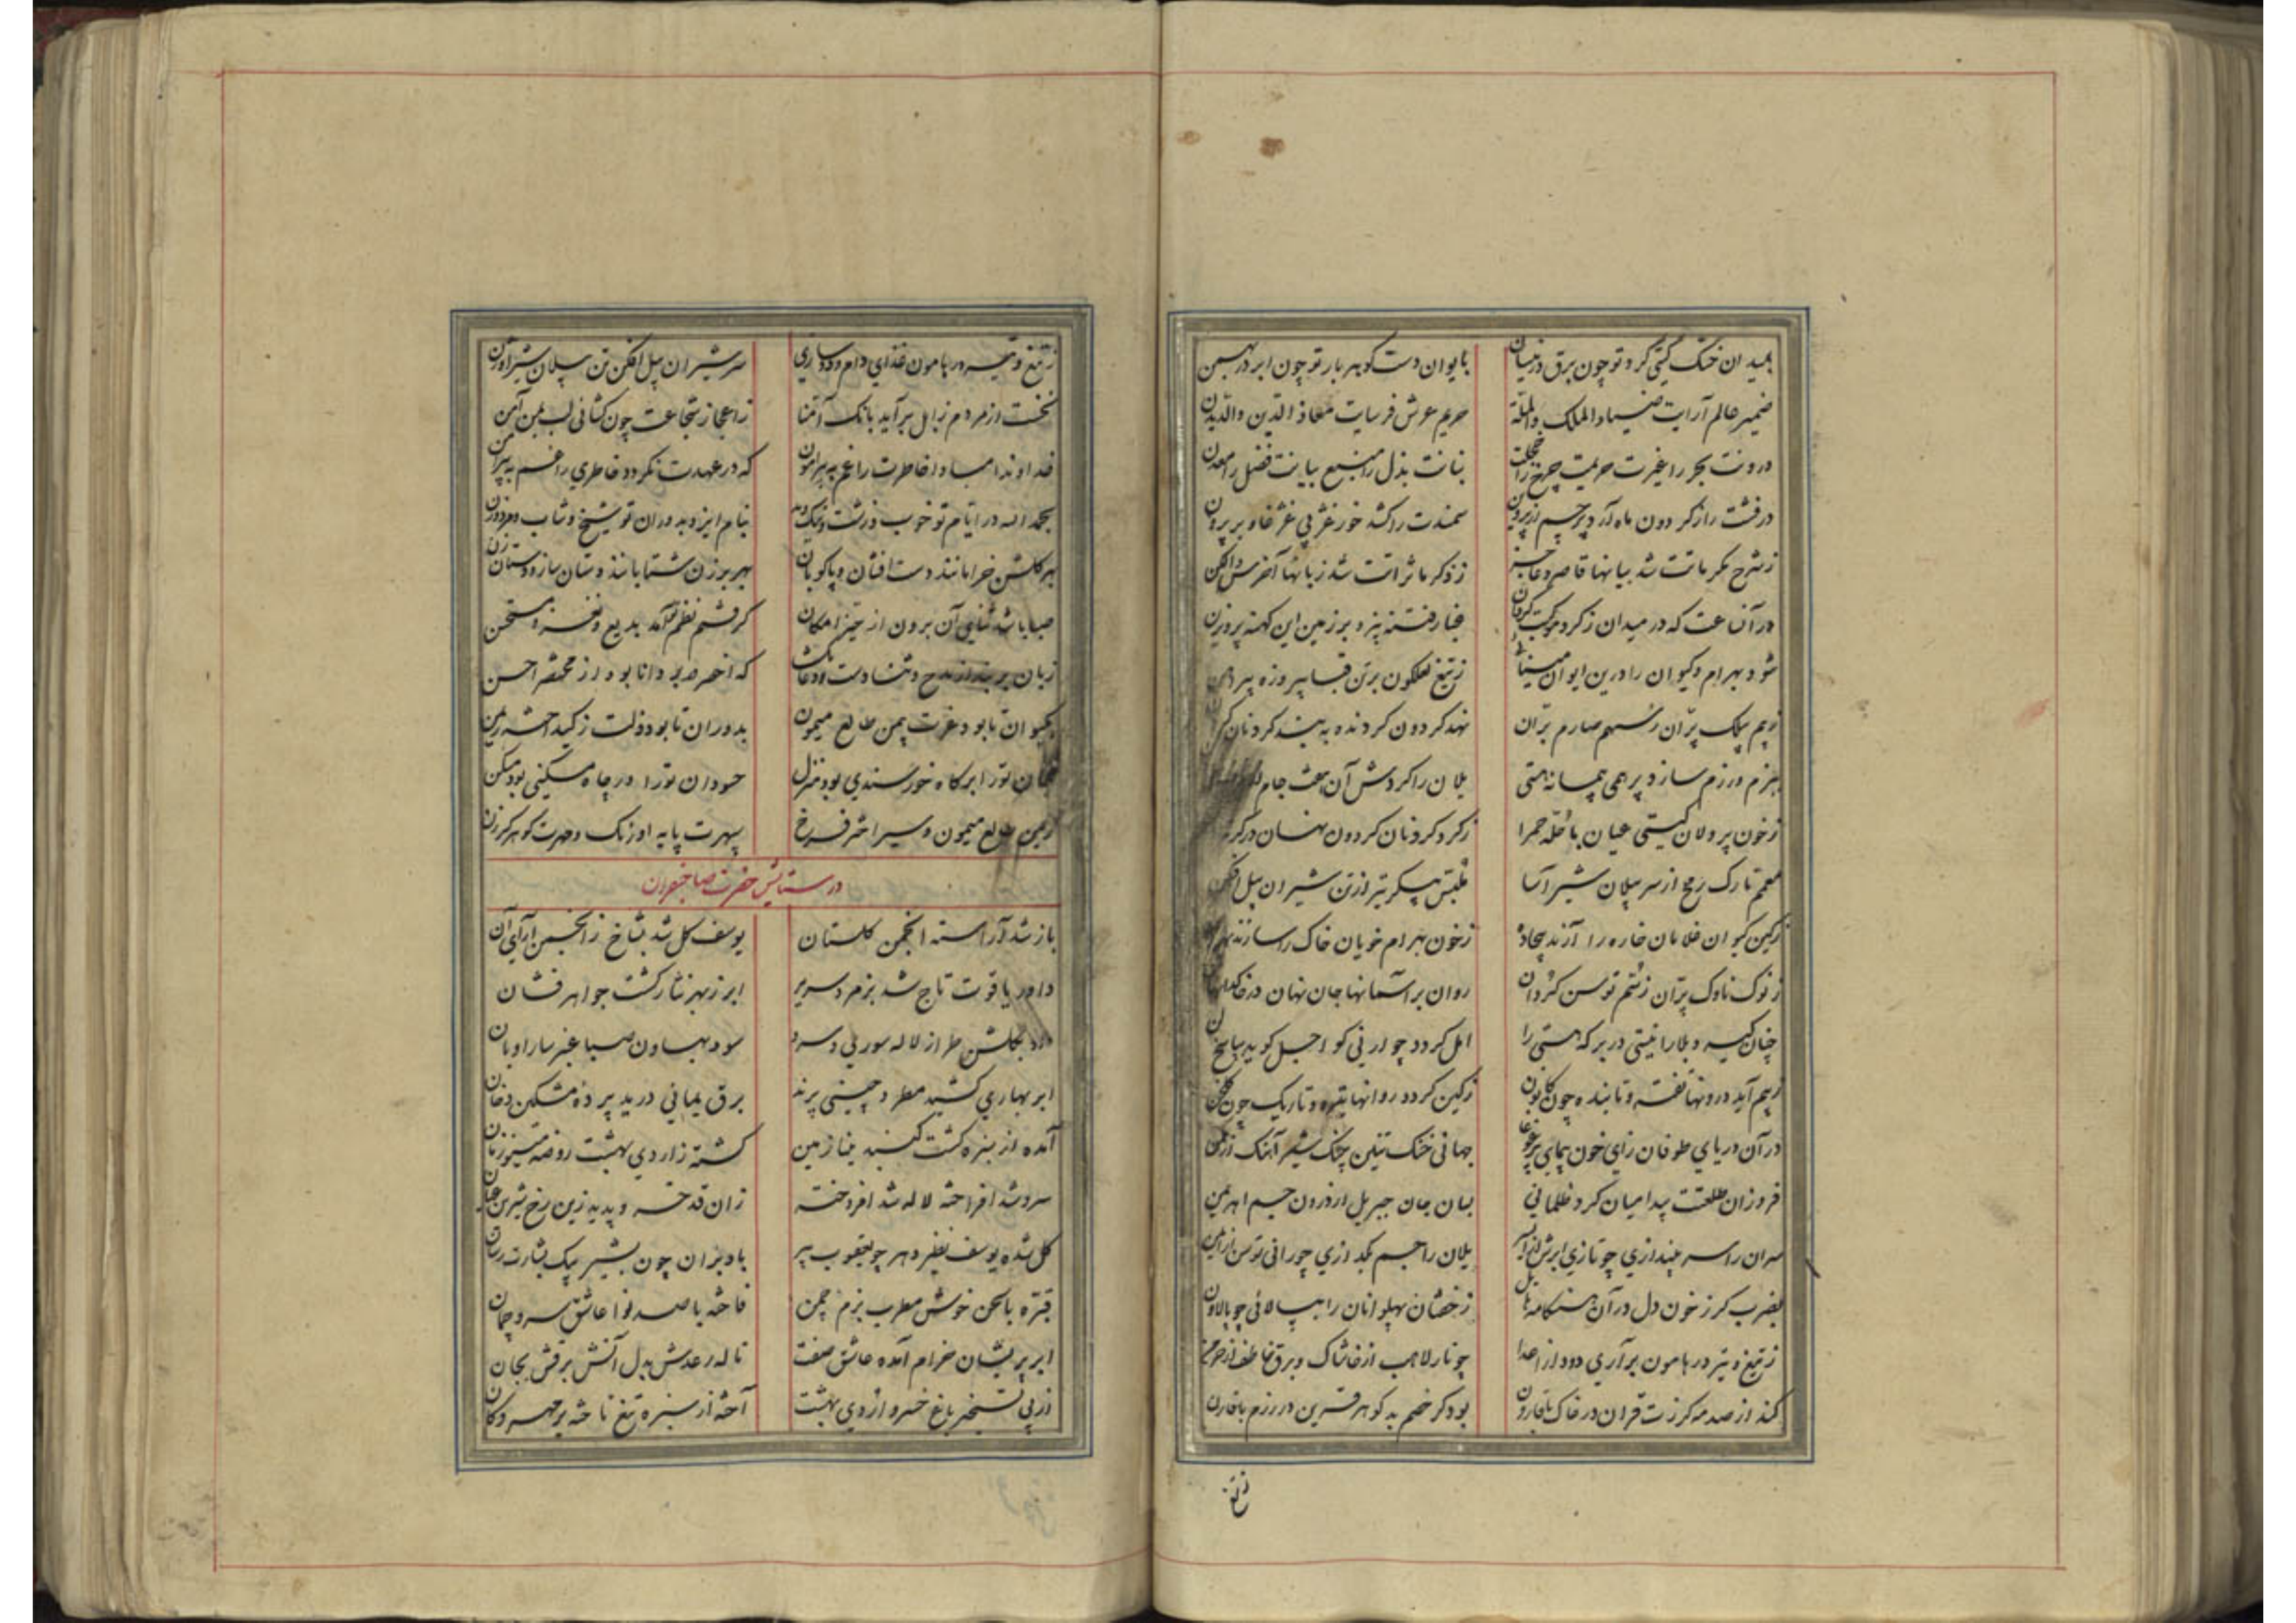 بمیدان خنک گیتی کرد تو چون برق در نیسان بایوان دست کوهر بار تو چون ابر در بهمن
ضمیر عالم آرایت ضیاء الملک والملة حریم عرش فرسایت معاذ الدین والدین
درونت بحر را غیرت حریمت چرخ را خجلت بنانت بذل را منبع بیانت فضل را معدن
درفشت را ز کردون ماه آرد پرچم از پروین سمندت را کشد خور
ز شرح مکرماتت شد بیانها قاصر و عاجز ز ذکر ماثراتت شد زبانها اخرس و الکن
در آنساعت که در میدان ز کرد موکب کردان غبار فتنه بیزد بر زمین این کهنه پرویزن
شود بهرام و کیوان را درین ایوان مینائی ز تیغ لعلکون بر تن قبا پیروزه پیراهن
ز بیم پیلک پران ز سهم صارم بران نهد کردون کردنده
ببزم رزم سازد پر همی پیمانه هستی یلان را کردش آن هفت جام
ز خون پر دلان کیتی عیان با حله حمرا ز کرد کردنان کردون نهان در کرزه
معمم تارک رمح از سر پیلان شیر آسا ملبس پیکر تیر از تن شیران پیل افکن
ز کین کیوان غلامان خاره را آرند بیجاده ز خون بهرام خویان خاک را سازند
ز نوک ناوک پران ز سم توسن کردان روان بر آسمانها جان نهان در خاکدانها
چنان کیرد بلا را نیستی در بر که هستی را امل کردد چو ارنی کو اجل کوید بپاسخ لن
ز بیم آید درونها تفته و تابنده چون کانون ز کین کردد روانها تیره و تاریک چون کلخن
در آن دریای طوفان زای خون پیمای پر غوغا جهانی خنک تنین چنک شیر آهنک
فروزان طلعتت پیدا میان کرد ظلمانی بسان جان جبریل از درون جسم اهریمن
سران را سر بیندازی چو تازی ابرش یلان را جسم بکدازی چو رانی توسن
بضرب کرز خون دل در آن هنکامه هایل ز خفتان پهلوانان را بپالائی چو پالاون
ز تیغ و تیر در هامون برآری دود از اعدا چو نار لاهب از خاشاک و برق خاطف از خرمن
کند از صدمه کرزت قران در خاک با قارون بود کر خصم بد کوهر قرین در رزم با قارن
ز تیغ
ز تیغ و تیر در هامون غذای دام و دد سازی سر شیران پیل افکن تن پیلان شیر اوژن
نخست از مردم زابل برآید بانک آمنا ز اعجاز شجاعت چون کشائی لب بمن آمن
خداوندا مبادا خاطرت را غم به پیرامون که در عهدت نکردد خاطری را غم به پیرامن
بحمد الله در ایام تو خوب و زشت و نیک و بد بنام ایزد بدوران تو شیخ و شاب و مرد و زن
بهر کلشن خرامانند دست افشان و پا کوبان بهر برزن شتابانند دستان ساز و دستان زن
صبا باشد ثنایی آن برون از حیز امکان کرفتم نظم تو آمد بدیع و نغز و مستحسن
زبان بربند از مدح و ثنا دست دعا بکشا که اخصر در بر دانا بود از مختصر احسن
بکیوان تا بود عزت بیمن طالع میمون بدوران تا بود ذلت ز کید اختر ریمن
محبان تو را بر کاه خورسندی بود منزل حسودان تو را در چاه مسکینی بود مسکن
ز یمن طالع میمون و سیر اختر فرخ سپهرت پایه اورنک و مهرت کوهر کرزن
در ستایش حضرت صاحبقران
باز شد آراسته انجمن کلستان یوسف کل شد بشاخ ز انجمن آرای آن
داور یاقوت تاج شد بزمرد سریر ابر ز بهر نثار کشت جواهر فشان
داد بکلشن طراز لاله سوری و سرو سود بهاون صبا عنبر سارا و بان
ابر بهاری کشید مطرد چینی پرند برق یمانی درید پرده مشکین دخان
آمده از سبزه کشت کنبد مینا زمین کشته ز اردی بهشت روضه مینو زمان
سرو شد افراخته لاله شد افروخته زان قد خسرو پدید زین رخ شیرین عیان
کل شده یوسف نظیر دهر چو یعقوب پیر باد بزان چون بشیر پیک بشارت رسان
قبره با لحن خوش مطرب بزم چمن فاخته با صد نوا عاشق سرو چمان
ابر پریشان خرام آمده عاشق صفت ناله رعدش بدل آتش برقش بجان
از پی تسخیر باغ خسرو اردی بهشت آخته از سبزه تیغ تاخته بر مهرکان